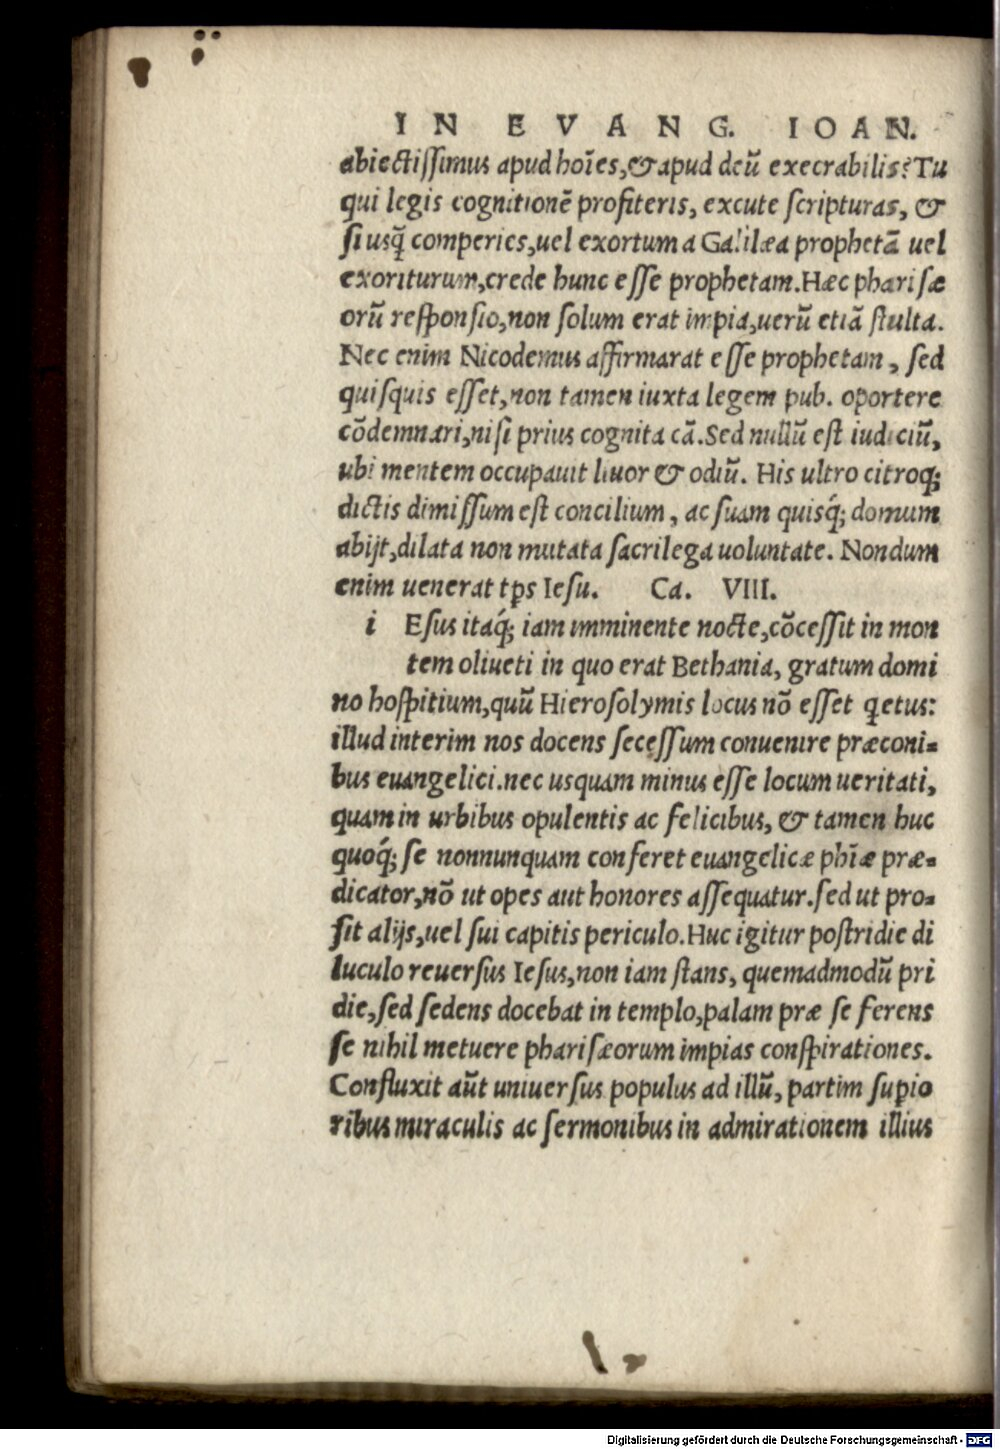 IN EVANG. IOAN.
abiectissimus apud hoīes,& apud deū execrabilis? Tu
qui legis cognitionē profiteris, excute scripturas, &
si usq̄ comperies,uel exortum a Galilæa prophetā uel
exoriturum,crede hunc esse prophetam. Hæc pharisæ
orū responsio,non solum erat impia,uerū etiā stulta.
Nec enim Nicodemus affirmarat esse prophetam, sed
quisquis esset,non tamen iuxta legem pub. oportere
cōdemnari,nisi prius cognita cā. Sed nullū est iudiciū,
ubi mentem occupauit liuor & odiū. His ultro citroq;
dictis dimissum est concilium, ac suam quisq́; domum
abijt,dilata non mutata sacrilega uoluntate. Nondum
enim uenerat tp̄s Iesu. Ca. VIII.
i Esus itaq́; iam imminente nocte,cōcessit in mon
tem oliueti in quo erat Bethania, gratum domi
no hospitium,quū Hierosolymis locus nō esset q̇etus:
illud interim nos docens secessum conuenire præconi=
bus euangelici.nec usquam minus esse locum ueritati,
quam in urbibus opulentis ac felicibus, & tamen huc
quoq́; se nonnunquam conferet euangelicæ phīæ præ=
dicator,nō ut opes aut honores assequatur.sed ut pro=
sit alijs,uel sui capitis periculo. Huc igitur postridie di
luculo reuersus Iesus,non iam stans, quemadmodū pri
die,sed sedens docebat in templo,palam præ se ferens
se nihil metuere pharisæorum impias conspirationes.
Confluxit aūt uniuersus populus ad illū, partim sup̱io
ribus miraculis ac sermonibus in admirationem illius
Digitalisierung gefördert durch die Deutsche Forschungsgemeinschaft - DFG